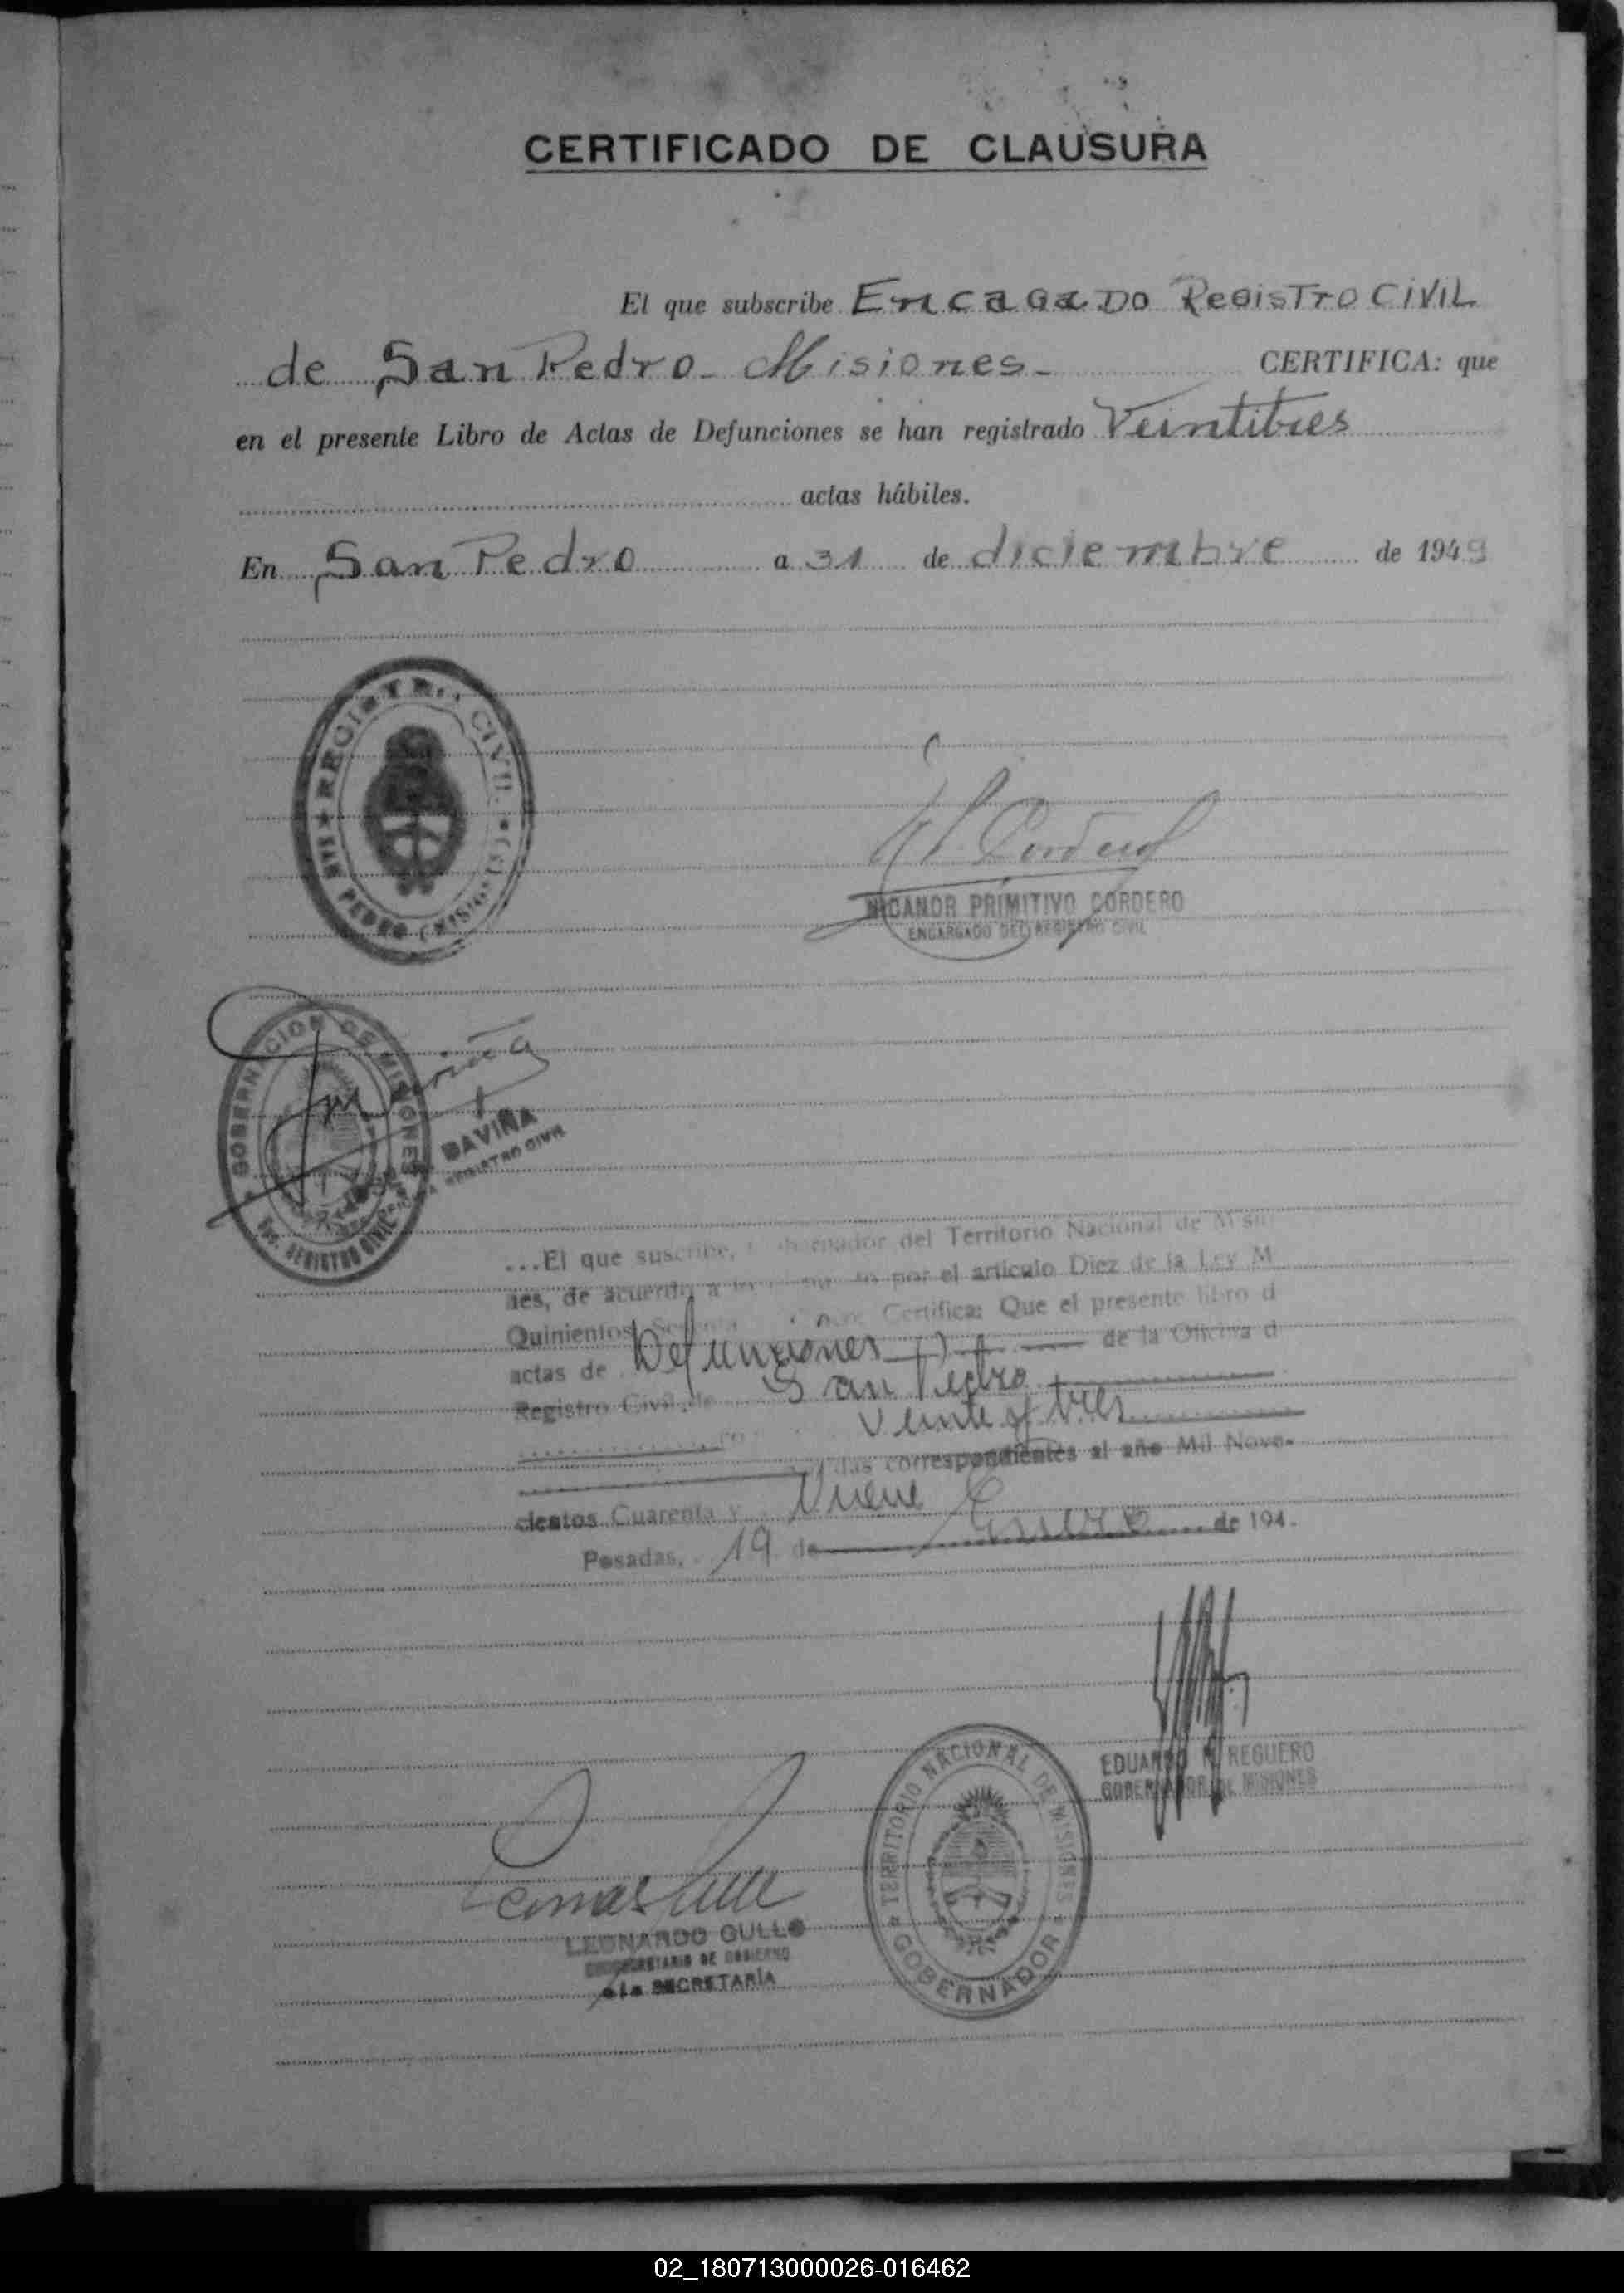 CERTIFICADO DE CLAUSURA
El que subscribe Encagado Registro Civil
de San Pedro - Misiones - CERTIFICA: que
en el presente Libro de Actas de Defunciones se han registrado Veintitres
actas hábiles.
En San Pedro a 31 de diciembre de 1949
REGISTRO CIVIL
SAN PEDRO (MISIONES)
NICANOR PRIMITIVO CORDERO
ENCARGADO DEL REGISTRO CIVIL
GOBERNACION DE MISIONES
REGISTRO CIVIL
DAVIÑA
REGISTRO CIVIL
...El que suscribe, del Territorio Nacional de
nes, de acuerdo a por el articulo Diez de la Ley M
Quinientos Certifica: Que el presente libro d
actas de Defunciones de la Oficina d
Registro Civil de San Pedro
Veinte y tres
correspondientes al año Mil Nove-
cientos Cuarenta y Nueve
Posadas, 19 de Enero de 194
EDUARDO REGUERO
GOBERNADOR DE MISIONES
TERRITORIO NACIONAL DE MISIONES
GOBERNADOR
LEONARDO GULLO
SECRETARIO DE GOBIERNO
a la SECRETARÍA
02_180713000026-016462